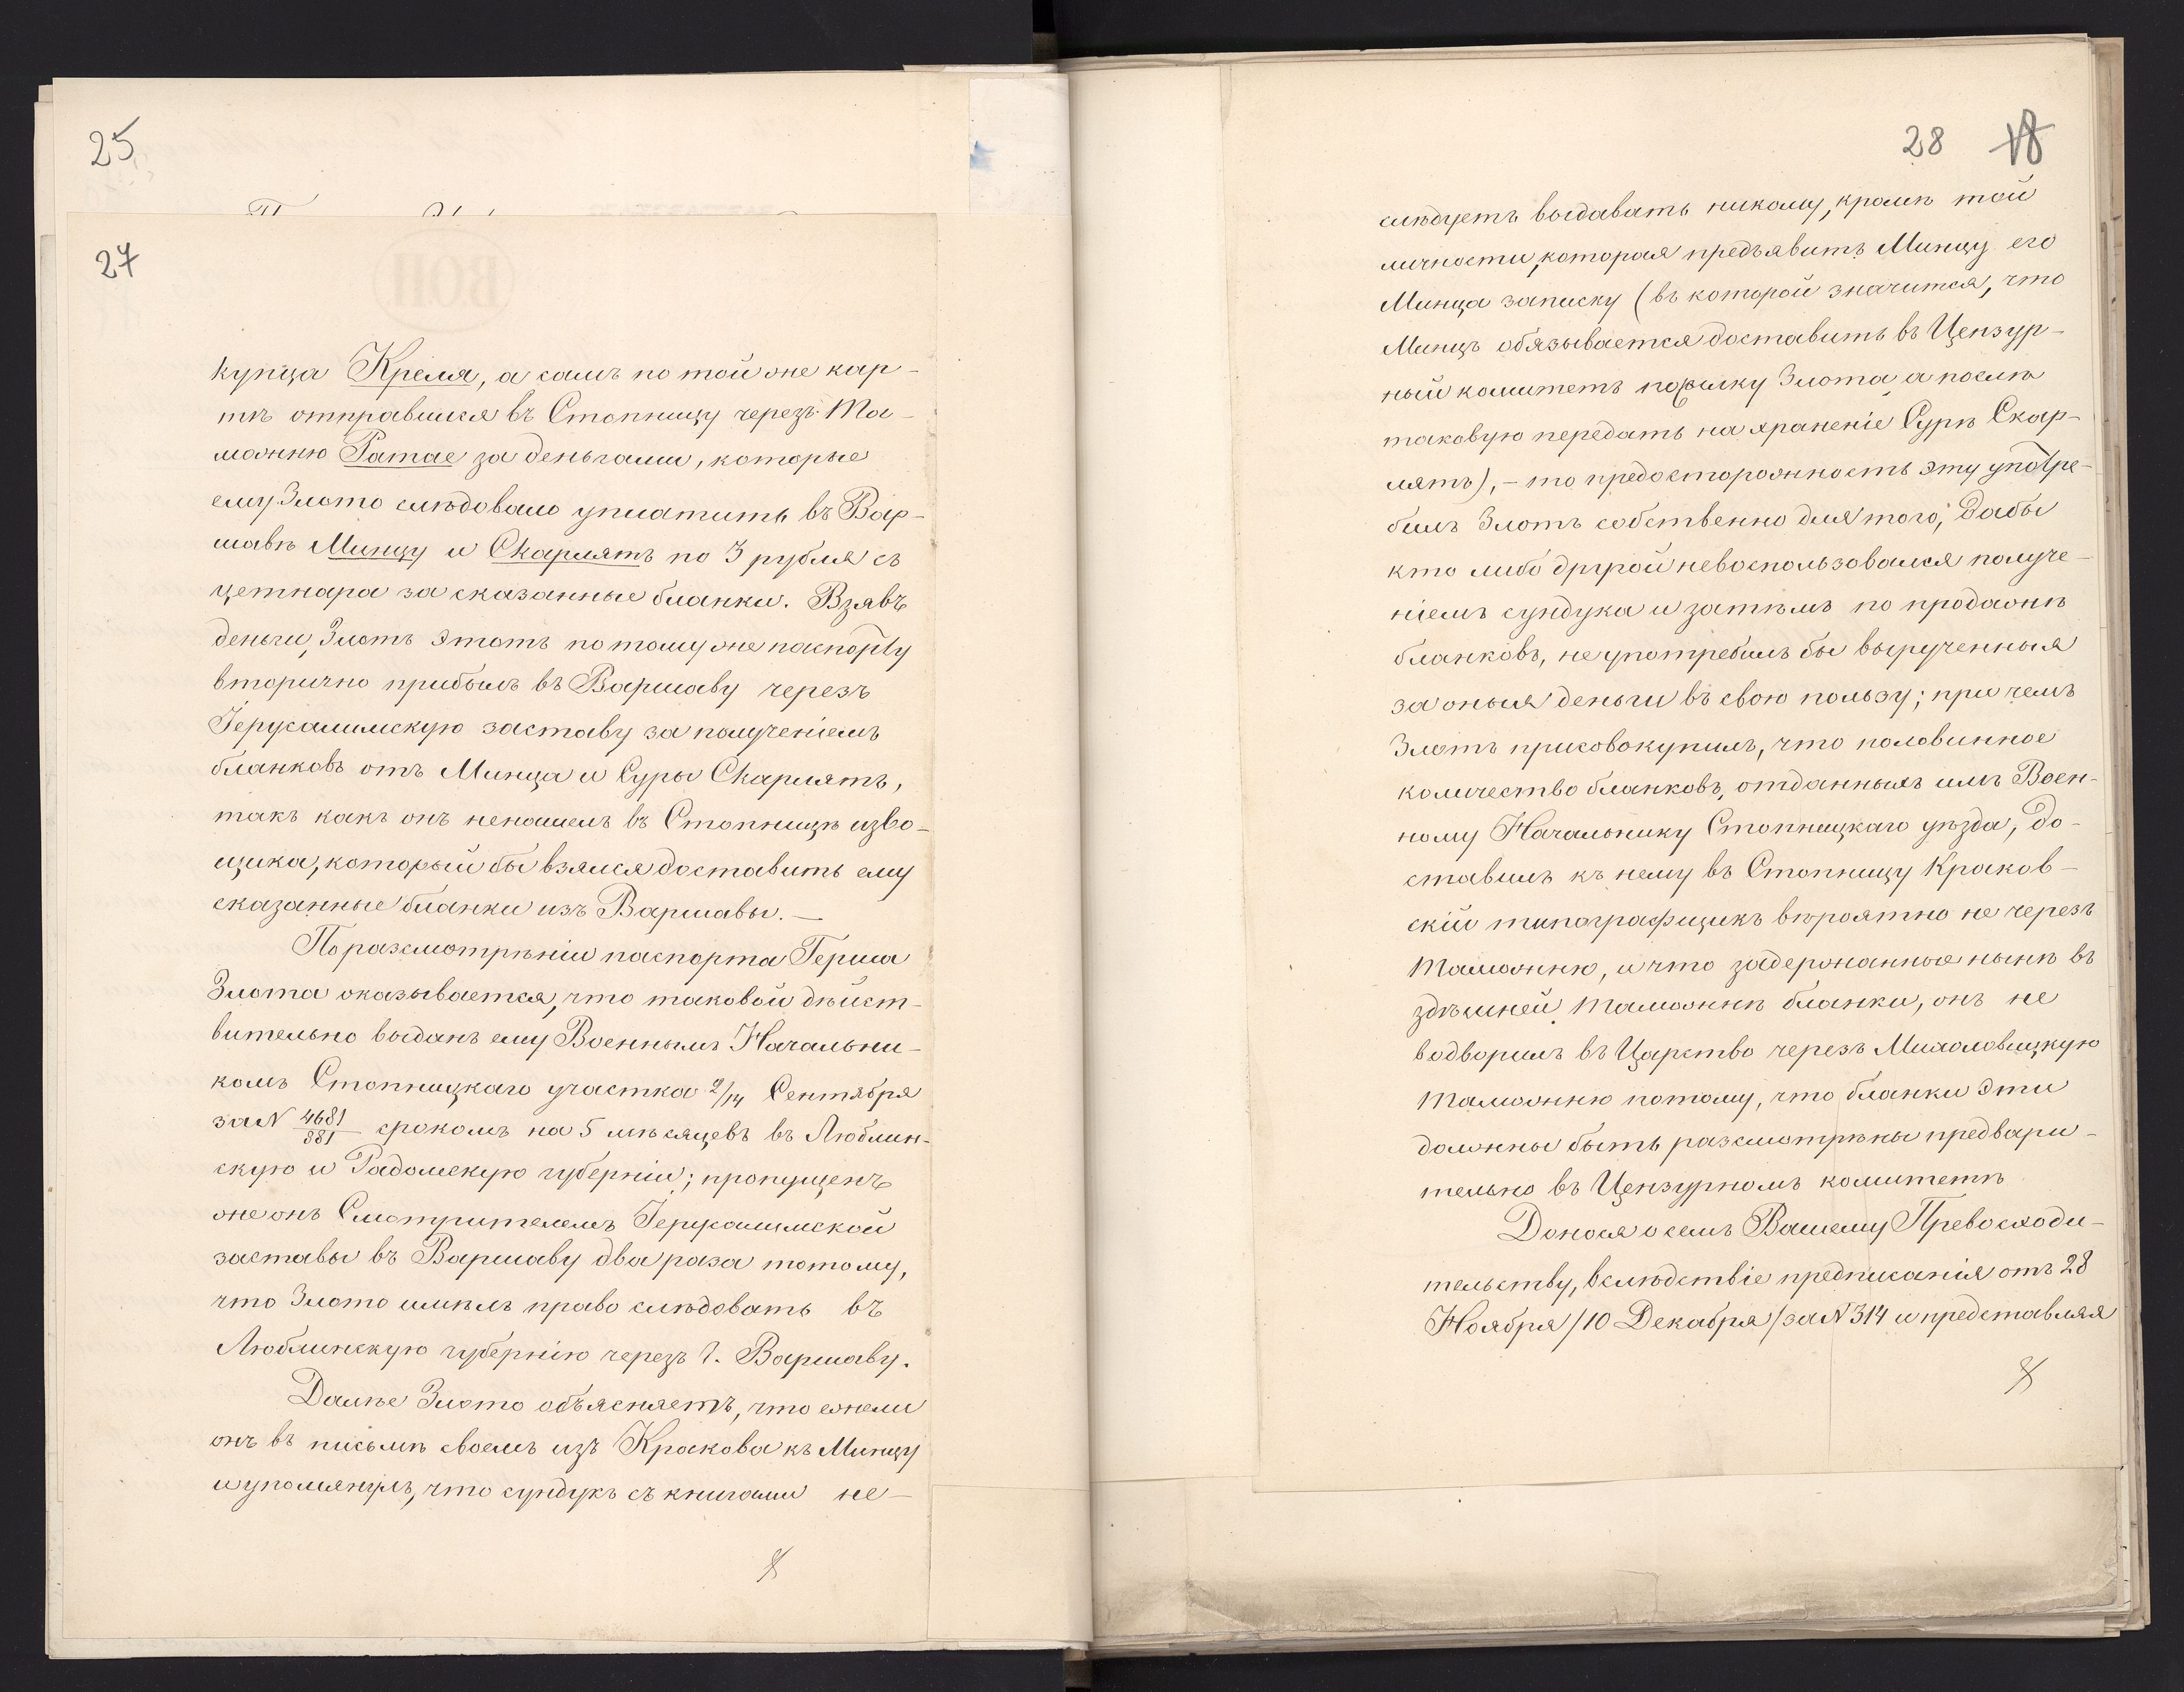 25
27
купца Креля, а самъ по той же кар-
тѣ отправился въ Стопницу черезъ Та-
можню Ратае за деньгами, которые
ему Злото слѣдовало уплатить въ Вар-
шавѣ Минцу и Скарлятъ по 3 рубля съ
цетнара за сказанные бланки. Взявъ
деньги, Злотъ этотъ по тому же паспорту
вторично прибылъ въ Варшаву черезъ
Іерусалимскую заставу за полученіемъ
бланковъ отъ Минца и Суры Скарлятъ,
такъ какъ онъ ненашелъ въ Стопницѣ изво-
щика, который бы взялся доставить ему
сказанные бланки изъ Варшавы. —
По разсмотрѣніи паспорта Герша
Злота оказывается, что таковой дѣйст-
вительно выданъ ему Военнымъ Начальни-
комъ Стопницкаго участка 2/14 Сентября
за N 4681/381 срокомъ на 5 мѣсяцевъ въ Люблин-
скую и Радомскую губерніи; пропущенъ
же онъ Смотрителемъ Іерусалимской
заставы въ Варшаву два раза потому,
что Злото имѣлъ право слѣдовать въ
Люблинскую губернію черезъ г. Варшаву.
Далѣе Злото объясняетъ, что ежели
онъ въ письмѣ своемъ изъ Кракова къ Минцу
и упомянулъ, что сундукъ съ книгами не-
28 18
слѣдуетъ выдавать никому, кромѣ той
личности, которая предъявитъ Минцу его
Минца записку (въ которой значится, что
Минцъ обязывается доставить въ Цензур-
ный комитетъ посылку Злота а послѣ
таковую передать на храненіе Сурѣ Скар-
лятъ), — то предосторожность эту употре-
билъ Злотъ собственно для того, дабы
кто либо другой невоспользовался получе-
ніемъ сундука и затѣмъ по продажѣ
бланковъ, не употребилъ бы вырученныя
за оныя деньги въ свою пользу; при чемъ
Злотъ присовокупилъ, что половинное
количество бланковъ, отданныхъ имъ Воен-
ному Начальнику Стопницкаго уѣзда, до-
ставилъ къ нему въ Стопницу Краков-
скій типографщикъ вѣроятно не черезъ
Таможню, и что задержанные нынѣ въ
здѣшней Таможнѣ бланки, онъ не
водворилъ въ Царство черезъ Михаловицкую
Таможню потому, что бланки эти
должны быть разсмотрѣны предвари-
тельно въ Цензурномъ комитетѣ
Донося о семъ Вашему Превосходи-
тельству, вслѣдствіе предписанія отъ 28
Ноября /10 Декабря/ за N 314 и представляя